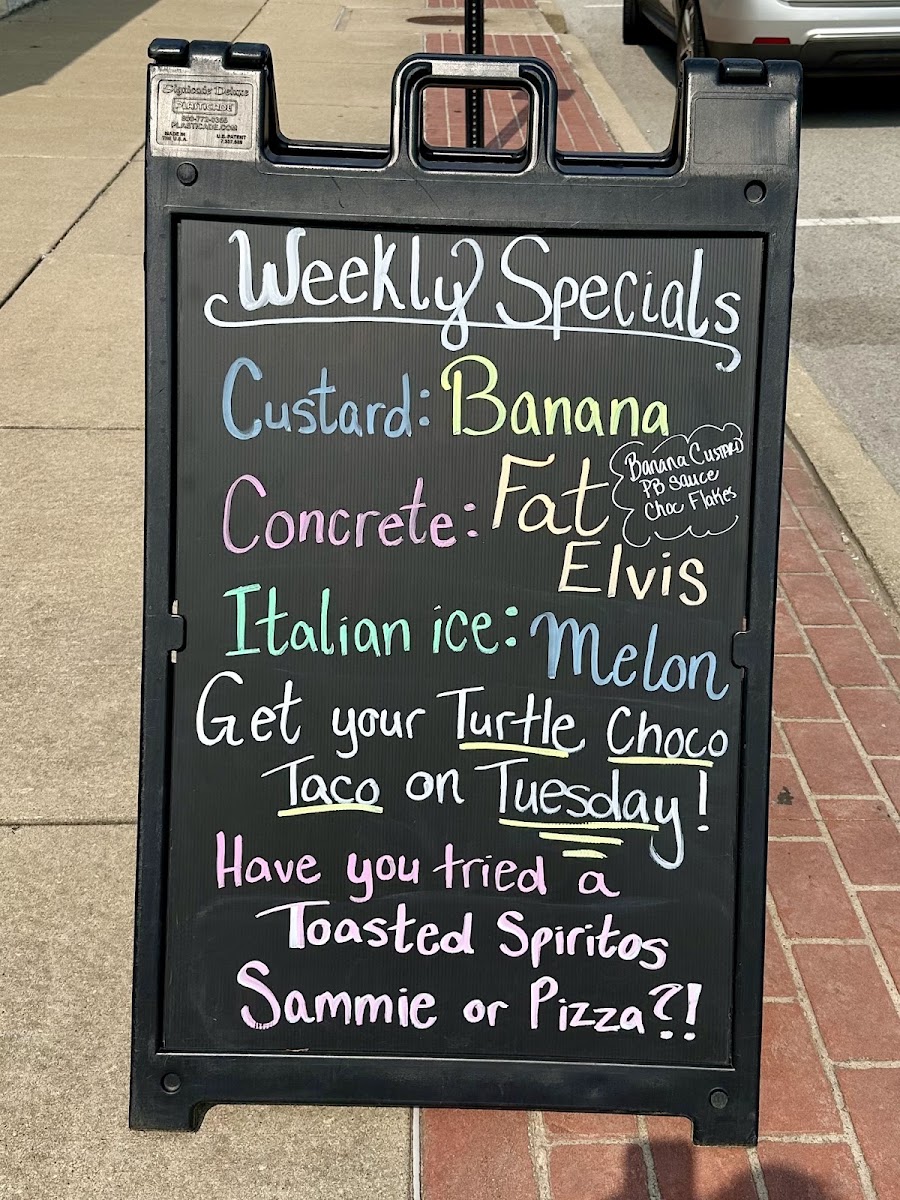 Signicade Deluxe
PLASTICADE
800-772-0355
PLASTICADE.COM
MADE IN
THE U.S.A.
U.S. PATENT
Weekly Specials
Custard: Banana
Concrete: Fat
Elvis
Banana Custard
PB Sauce
Choc Flakes
Italian ice: Melon
Get your Turtle Choco
Taco on Tuesday!
Have you tried a
Toasted Spiritos
Sammie or Pizza?!